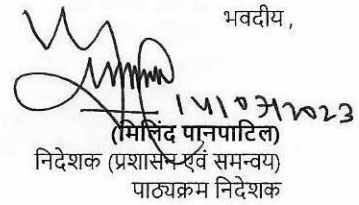 भवदीय,
14/07/2023
(मिलिंद पानपाटिल)
निदेशक (प्रशासन एवं समन्वय)
पाठ्यक्रम निदेशक